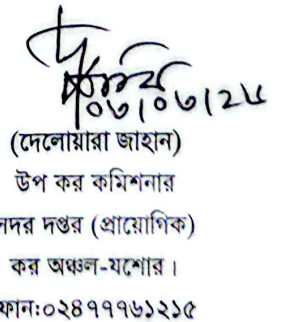 ০৩/০৬/২৫
(দেলোয়ারা জাহান)
উপ কর কমিশনার
সদর দপ্তর (প্রায়োগিক)
কর অঞ্চল-যশোর।
ফোনঃ০২৪৭৭৭৬১২১৫